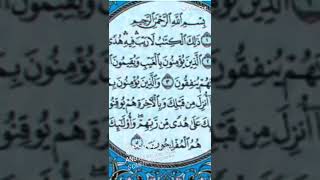 بِسْمِ اللَّهِ الرَّحْمَٰنِ الرَّحِيمِ
ذَٰلِكَ الْكِتَٰبُ لَا رَيْبَ فِيهِ هُدًى
الَّذِينَ يُؤْمِنُونَ بِالْغَيْبِ وَيُقِيمُونَ
هُمْ يُنفِقُونَ وَالَّذِينَ يُؤْمِنُونَ
أُنزِلَ مِن قَبْلِكَ وَبِالْآخِرَةِ هُمْ يُوقِنُو
كَ عَلَىٰ هُدًى مِّن رَّبِّهِمْ وَأُولَٰئِكَ
هُمُ الْمُفْلِحُونَ